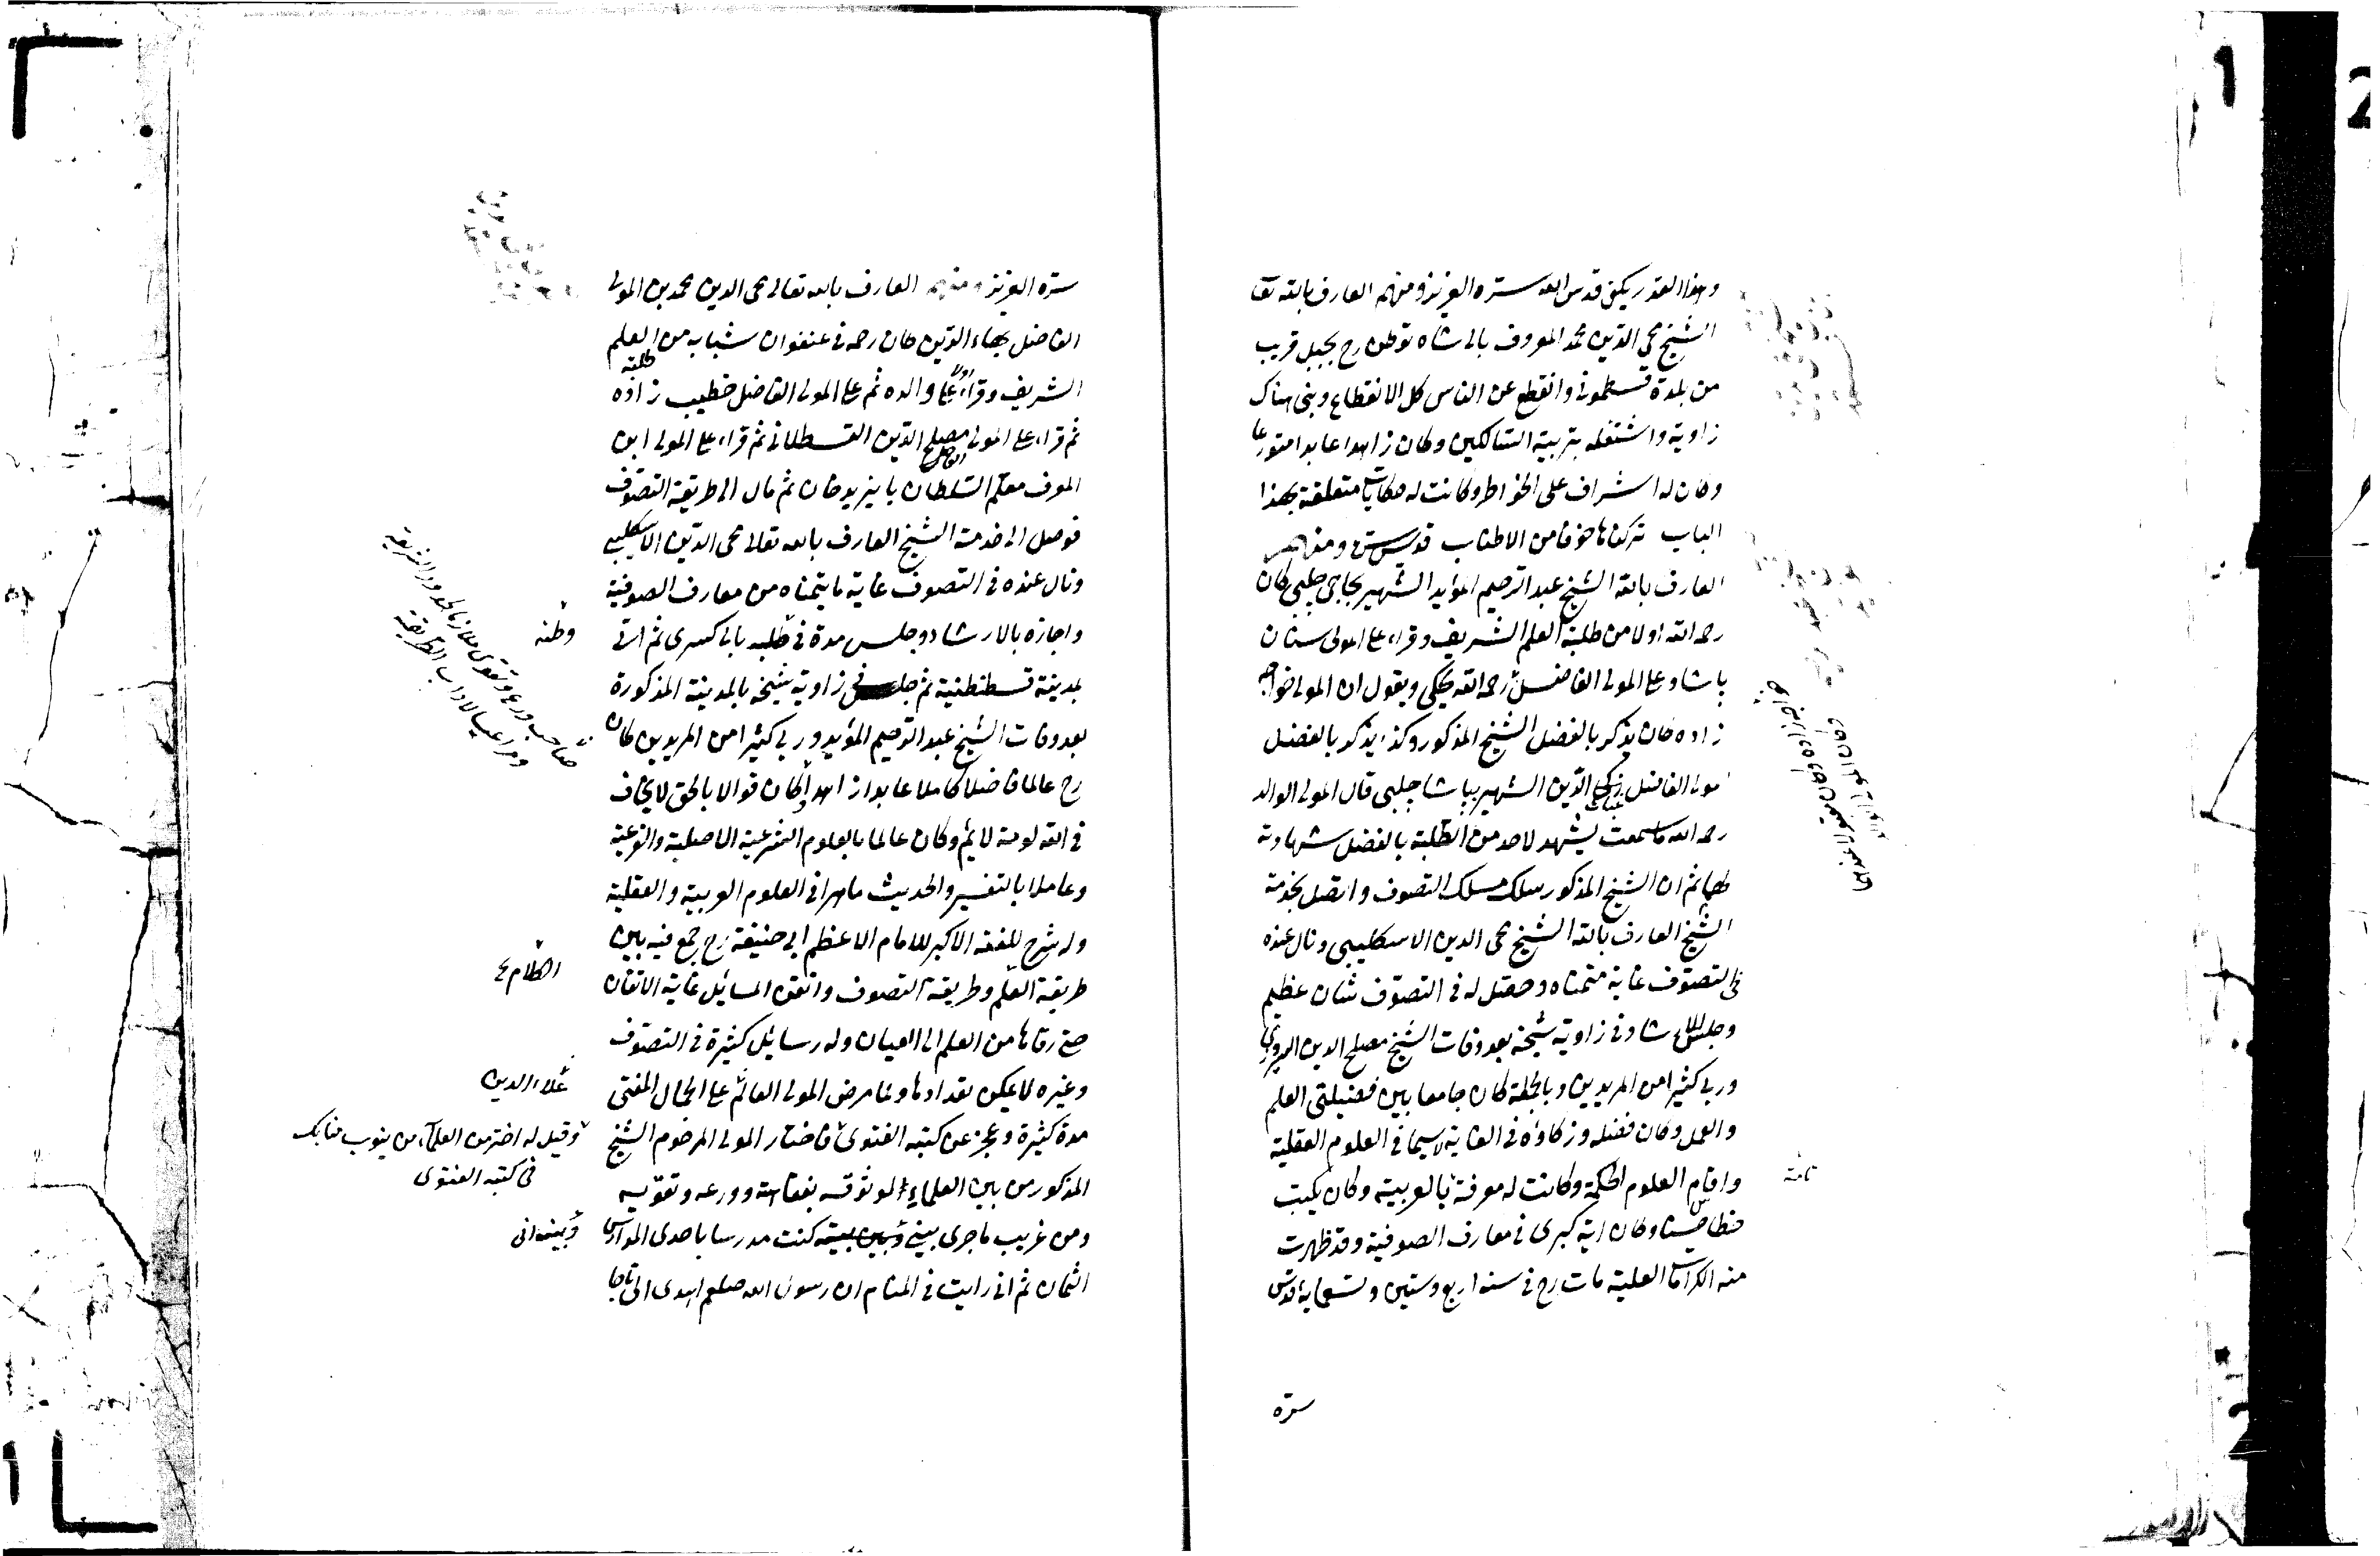 وهذا القدر يكفي قدس الله سره العزيز ومنهم العارف بالله تعا
الشيخ محي الدين محمد المعروف بالى شاه توطن رح بجبل قريب
من بلدة قسطموني وانقطع عن الناس كل الانقطاع وبنى هناك
زاوية واشتغل بتربية السالكين وكان زاهدا عابدا متورعا
وكان له اشراف على الخواطر وكانت له حكايات متعلقة بهذا
الباب تركناها خوفا من الاطناب قدس سره ومنهم
العارف بالله الشيخ عبد الرحيم المؤيد الشهير بحاجي چلبي كان
رحمه الله اولا من طلبة العلم الشريف وقراء على المولى سنان
باشا وعلى المولى الفاضل رحمه الله يحكي ويقول ان المولى خواجه
زاده كان يذكر بالفضل الشيخ المذكور وكذا يذكر بالفضل
مولى الفاضل الدين الشهير بباشا چلبي قال المولى الوالد
رحمه الله ما سمعت يشهد لاحد من الطلبة بالفضل شهادته
لهما ثم ان الشيخ المذكور سلك مسلك التصوف واتصل بخدمة
الشيخ العارف بالله الشيخ محي الدين الاسكليبى ونال عنده
في التصوف غاية متمناه وحصل له في التصوف شان عظيم
وجلس للارشاد في زاوية شيخه بعد وفات الشيخ مصلح الدين السيروزي
وربى كثيرا من المريدين وبالجملة كان جامعا بين فضيلتي العلم
والعمل وكان فضله وزكاؤه في الغاية لاسيما في العلوم العقلية
واقسام العلوم الحكمية وكانت له معرفة بالعربية وكان يكتب
تامة
خطا حسنا وكان اية كبرى في معارف الصوفية وقد ظهرت
منه الكرامات العلية مات رح في سنة اربع وستين وتسعماية قدس
سره
سره العزيز ومنهم العارف بالله تعالى محي الدين محمد بن المولى
الفاضل بهاء الدين كان رحمه في عنفوان شبابه من العلم
طلبة
الشريف وقراء اولا على والده ثم على المولى الفاضل خطيب زاده
ثم قراء على المولى مصلح الدين القسطلاني ثم قراء على المولى ابن
الفاضل
المعرف معلم السلطان بايزيد خان ثم مال الى طريقة التصوف
فوصل الى خدمة الشيخ العارف بالله تعالى محي الدين الاسكليبى
ونال عنده في التصوف غاية ما يتمناه من معارف الصوفية
واجازه بالارشاد وجلس مدة في بالى كسرى ثم اتى
وطنه
بمدينة قسطنطنية ثم جلس في زاوية شيخه بالمدينة المذكورة
بعد وفات الشيخ عبد الرحيم المؤيد وربى كثيرا من المريدين كان
رح عالما فاضلا كاملا عابدا زاهدا وكان قوالا بالحق لا يخاف
صاحب ورع وتقوى ملازما لحدود الشريعة
ومراعيا لاداب الطريقة
في الله لومة لائم وكان عالما بالعلوم الشرعية الاصلية والفرعية
وعاملا بالتفسير والحديث ماهرا في العلوم العربية والعقلية
وله شرح للفقه الاكبر للامام الاعظم ابي حنيفة رح جمع فيه بين
طريقة العلم وطريقة التصوف واتقن المسائل غاية الاتقان
الكلام
حتى رقاها من العلم الى العيان وله رسائل كثيرة في التصوف
وغيره لا يمكن تعدادها ولما مرض المولى العالم على الجمال المفتى
علاء الدين
مدة كثيرة وعجز عن كتبه الفتوى فاختار المولى المرحوم الشيخ
وقيل له اختر من العلماء من ينوب منابك
في كتبه الفتوى
المذكور من بين العلماء لوثوقه بفقاهته وورعه وتقويه
ومن غريب ما جرى بيني وبين بيته كنت مدرسا باحدى المدارس
وبينه اني
الثمان ثم اني رايت في المنام ان رسول الله صلعم اهدى الى تاجا